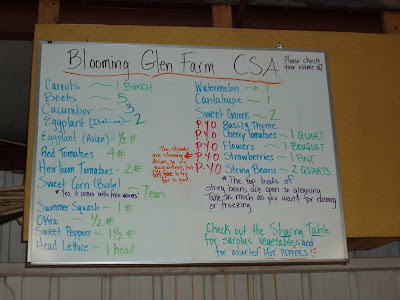 Blooming Glen Farm CSA
Please check
your name off
Carrots ~ 1 BUNCH
Beets ~ 5
Cucumber ~ 3
Eggplant (Italian) ~ 2
Eggplant (Asian) ~ 1/2 #
Red Tomatoes ~ 4 #
Heirloom Tomatoes ~ 2 #
Sweet Corn (Bicolor) ~ 7 ears
* Yes, it comes with free worms!
Summer Squash ~ 1 #
Okra ~ 1/2 #
Sweet Peppers ~ 1 1/2 #
Head Lettice ~ 1 head
Watermelon → 1
Cantaloupe ~ 1
Sweet Onions ~ 2
PYO Basil & Thyme
PYO Cherry tomatoes ~ 1 QUART
PYO Flowers ~ 1 BOUQUET
PYO Strawberries ~ 1 PINT
PYO String Beans ~ 2 QUARTS
The strawbs
are slowing
down, so no
guarantees, but
try for a pint
* The top beds of
string beans are open to gleaning.
Take as much as you want for canning
or freezing.
Check out the Sharing Table
for surplus vegetables and
for assorted HOT PEPPERS!